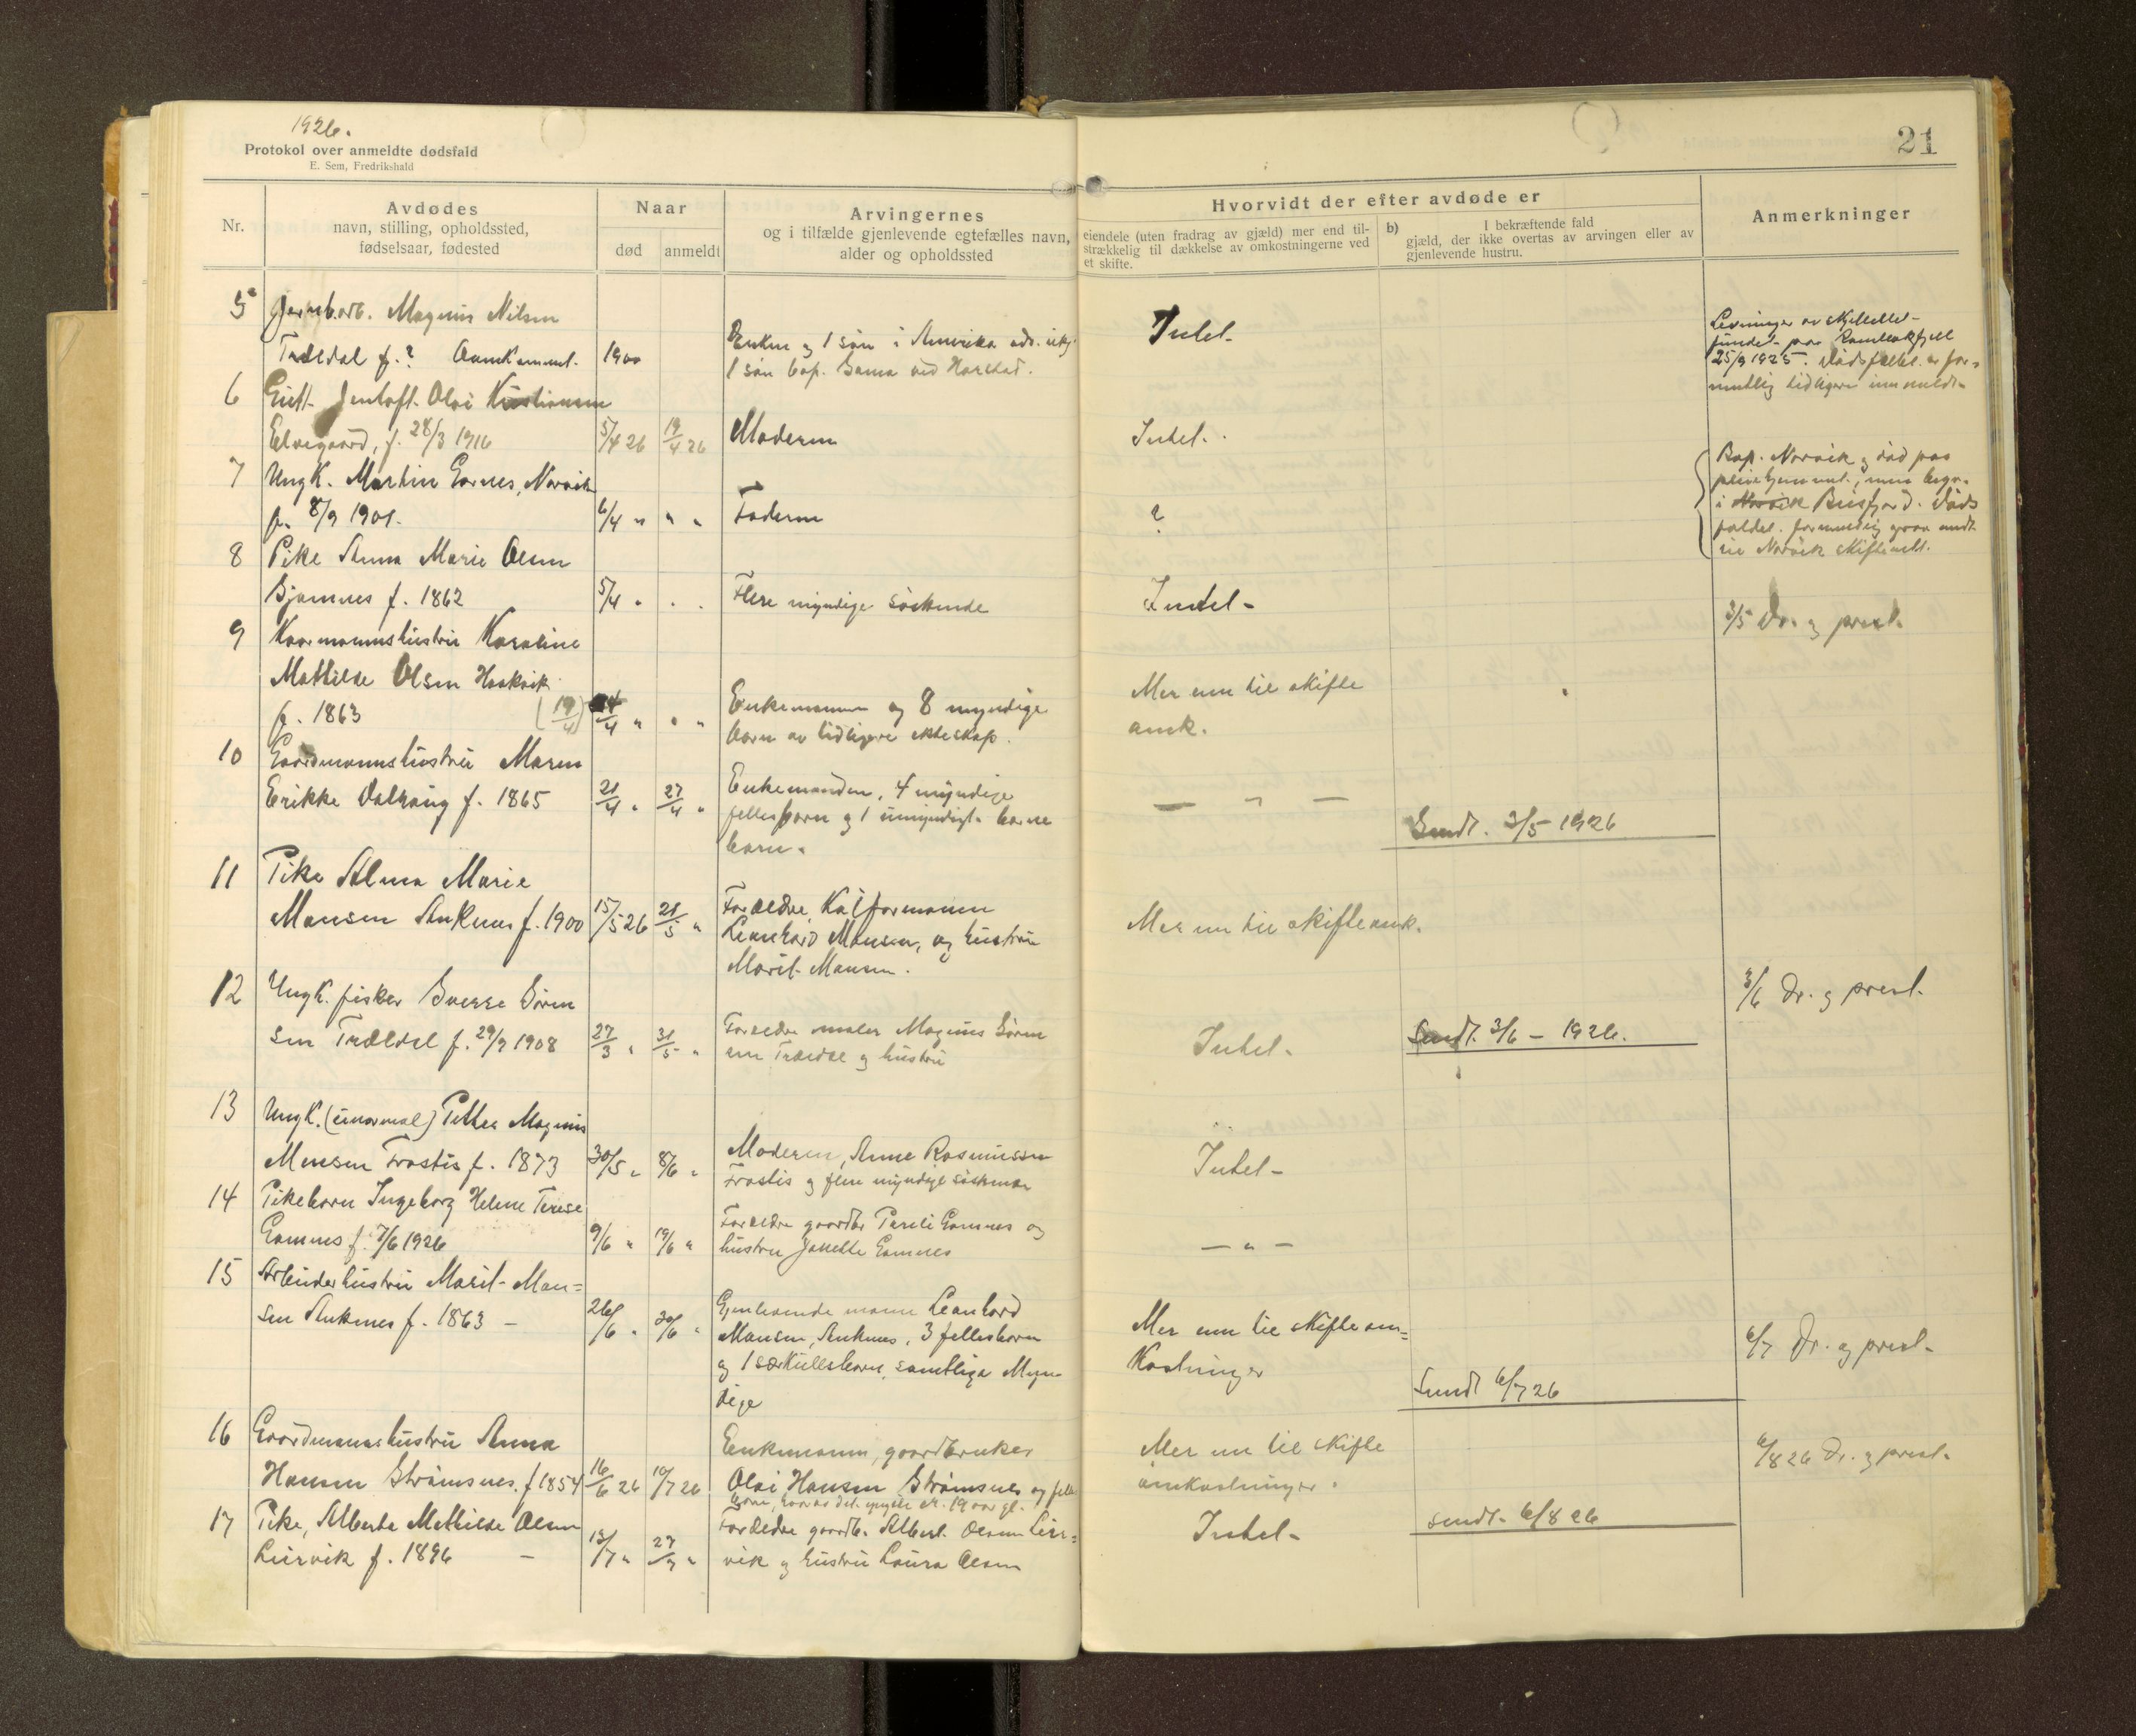 1926.
Protokol over anmeldte dødsfald
E. Sem, Fredrikshald
21
Nr.
Avdødes
navn, stilling, opholdssted,
fødselsaar, fødested
Naar
død
anmeldt
Arvingernes
og i tilfælde gjenlevende egtefælles navn,
alder og opholdssted
Hvorvidt der efter avdøde er
eiendele (uten fradrag av gjæld) mer end til-
strækkelig til dækkelse av omkostningerne ved
et skifte.
b) I bekræftende fald
gjæld, der ikke overtas av arvingen eller av
gjenlevende hustru.
Anmerkninger
5 Jernb.arb. Magnus Nilsen
Trældal f. ? 1900
Enken og 1 søn i Amerika
1 søn bop. Sama ved Harstad.
Intet.
Levninger av skjelettet
fundet paa
25/9 1925. Dødsfaldet er for-
mentlig tidligere innmeldt
6 Gutt Olai Kristiansen
Elvegaard, f. 28/3 1916 5/4 26 19/4 26
Moderen
Intet.
7 Ungk. Martin Narvik
f. 8/9 1901. 6/4 " " "
Faderen
?
Bop. Narvik og død paa
pleiehjemmet, men begr.
i Narvik Beisfjord. Døds
faldet formentlig
Narvik skifterett.
8 Pike Anna Marie Olsen
Bjamnes f. 1862 5/4 " . .
Flere myndige søskende
Intet -
3/5 Dr. og prest.
9 Kaarmannshustru Karoline
Mathilde Olsen Haakvik
f. 1863 (19/4) 14/4 " " "
Enkemann og 8 myndige
barn av tidligere ekteskap.
Mer enn til skifte
omk.
10 Gaardmannshustru Maren
Erikke Dalhaug f. 1865 21/4 " 27/4 "
Enkemanden, 4 myndige
fellesbarn og 1 umyndigt barne
barn.
— " —
Sendt. 3/5 1926
11 Pike Alma Marie
Monsen Ankenes f. 1900 15/5 26 21/5 "
Forældre, Kaiformann
Leonhard Monsen, og hustru
Marit Monsen.
Mer enn til skifteomk.
3/6 Dr. og prest.
12 Ungk. fisker Sverre Sören
sen Trældal f. 29/9 1908 27/3 " 31/5 "
Forældre maler Magnus Sören
sen Trældal og hustru
Intet.
Sendt. 3/6 - 1926.
13 Ungk. (unormal) Petter Magnus
Monsen Frostis f. 1873 30/5 " 8/6 "
Moderen, Anne Rasmussen
Frostis og flere myndige søskende
Intet -
14 Pikebarn Ingeborg Helene Terese
Gamnes f. 7/6 1926 9/6 " 19/6 "
Forældre gaardbr. Gamnes og
hustru Gamnes
— " —
15 Arbeiderhustru Marit Mon=
sen Ankenes f. 1863 - 26/6 " 30/6 "
Gjenlevende mann Leonhard
Monsen, Ankenes, 3 fellesbarn
og 1 særkullsbarn, samtlige myn
dige
Mer enn til skifteom=
kostninger
6/7 Dr. og prest -
Sendt 6/7 26
16 Gaardmannshustru Anna
Hansen Strømsnes, f 1854 16/6 26 10/7 26
Enkemann, gaardbruker
Olai Hansen Strømsnes og felles
barn, hvorav det yngste er 19 aar gl.
Mer enn til skifte
omkostninger.
6/8 26 Dr. og prest.
sendt. 6/8 26
17 Pike, Alberte Mathilde Olsen
Leirvik f. 1896 - 13/7 " 27/7 "
Forældre gaardb. Albert Olsen Leir=
vik og hustru Laura Olsen
Intet -